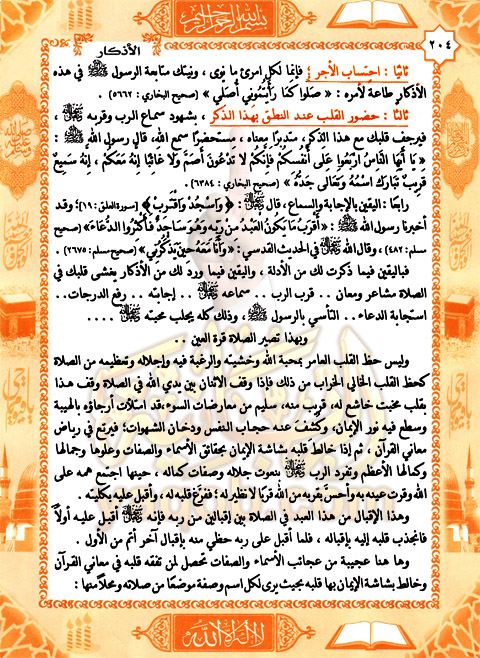 بسم الله الرحمن الرحيم
٢٠٤
الأذكار
ثانيًا : احتساب الأجر ؛ فإنما لكل امرئ ما نوى ، ونيتك متابعة الرسول ﷺ في هذه
الأذكار، طاعة لأمره : « صَلُّوا كَمَا رَأَيْتُمُونِي أُصَلِّي » (صحيح البخاري : ٥٦٦٢) .
ثالثًا : حضور القلب عند النطق بهذا الذكر ، بشهود سماع الرب وقربه ،
فيرجف قلبك مع هذا الذكر، متدبرًا معناه ، مستحضرًا سمع الله، قال رسول الله ﷺ :
« يَا أَيُّهَا النَّاسُ ارْبَعُوا عَلَى أَنْفُسِكُمْ فَإِنَّكُمْ لَا تَدْعُونَ أَصَمَّ وَلَا غَائِبًا إِنَّهُ مَعَكُمْ ، إِنَّهُ سَمِيعٌ
قَرِيبٌ تَبَارَكَ اسْمُهُ وَتَعَالَى جَدُّهُ » (صحيح البخاري : ٦٣٨٤) .
رابعًا : اليقين بالإجابة والسماع ، قال : ﴿ وَاسْجُدْ وَاقْتَرِبْ ﴾ [سورة العلق : ١٩]؛ وقد
أخبرنا رسول الله ﷺ : « أَقْرَبُ مَا يَكُونُ الْعَبْدُ مِنْ رَبِّهِ وَهُوَ سَاجِدٌ فَأَكْثِرُوا الدُّعَاءَ » (صحيح
مسلم: ٤٨٢) ، وقال الله في الحديث القدسي : « وَأَنَا مَعَهُ حِينَ يَذْكُرُنِي » (صحيح مسلم: ٢٦٧٥) .
فباليقين فيما ذكرت لك من الأدلة ، واليقين فيما ورد لك من الأذكار يغشى قلبك في
الصلاة مشاعر ومعان .. قرب الرب .. سماعه .. إجابته .. رفع الدرجات..
استجابة الدعاء .. التأسي بالرسول ﷺ ، وذلك كله يجلب محبته ....
وبهذا تصير الصلاة قرة العين ..
وليس حظ القلب العامر بمحبة الله وخشيته والرغبة فيه وإجلاله وتعظيمه من الصلاة
كحظ القلب الخالي الخراب من ذلك فإذا وقف الاثنان بين يدي الله في الصلاة وقف هذا
بقلب مخبت خاشع له، قريب منه، سليم من معارضات السوء، قد امتلأت أرجاؤه بالهيبة
وسطع فيه نور الإيمان، وكشف عنه حجاب النفس ودخان الشهوات؛ فيرتع في رياض
معاني القرآن ، ثم إذا خالط قلبه بشاشة الإيمان بحقائق الأسماء والصفات وعلوها وجمالها
وكمالها الأعظم وتفرد الرب بنعوت جلاله وصفات كماله ، حينها اجتمع همه على
الله وقرت عينه به وأحسَّ بقربه من الله قربًا لا نظير له ؛ ففرَّغ قلبه له ، وأقبل عليه بكليته .
وهذا الإقبال من هذا العبد في الصلاة بين إقبالين من ربه فإنه أقبل عليه أولًا
فانجذب قلبه إليه بإقباله ، فلما أقبل على ربه حظي منه بإقبال آخر أتم من الأول .
وها هنا عجيبة من عجائب الأسماء والصفات تحصل لمن تفقه قلبه في معاني القرآن
وخالط بشاشة الإيمان بها قلبه بحيث يرى لكل اسم وصفة موضعًا من صلاته ومحلًا منها :
لا إله إلا الله